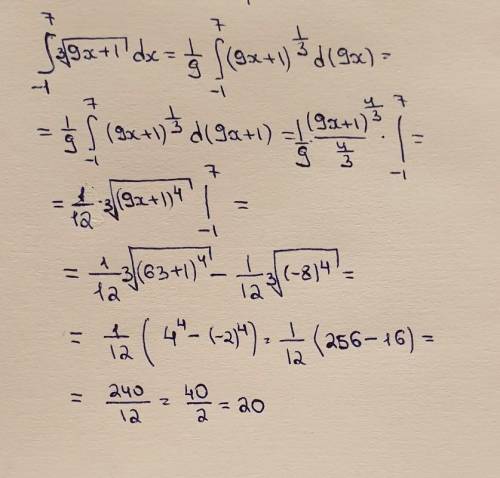 ∫₋₁⁷ ∛(9x+1) dx = 1/9 ∫₋₁⁷ (9x+1)^(1/3) d(9x) =
= 1/9 ∫₋₁⁷ (9x+1)^(1/3) d(9x+1) = 1/9 · (9x+1)^(4/3) / (4/3) · |₋₁⁷ =
= 1/12 · ∛((9x+1)⁴) |₋₁⁷ =
= 1/12 ∛((63+1)⁴) − 1/12 ∛((-8)⁴) =
= 1/12 (4⁴ − (-2)⁴) = 1/12 (256 − 16) =
= 240/12 = 40/2 = 20